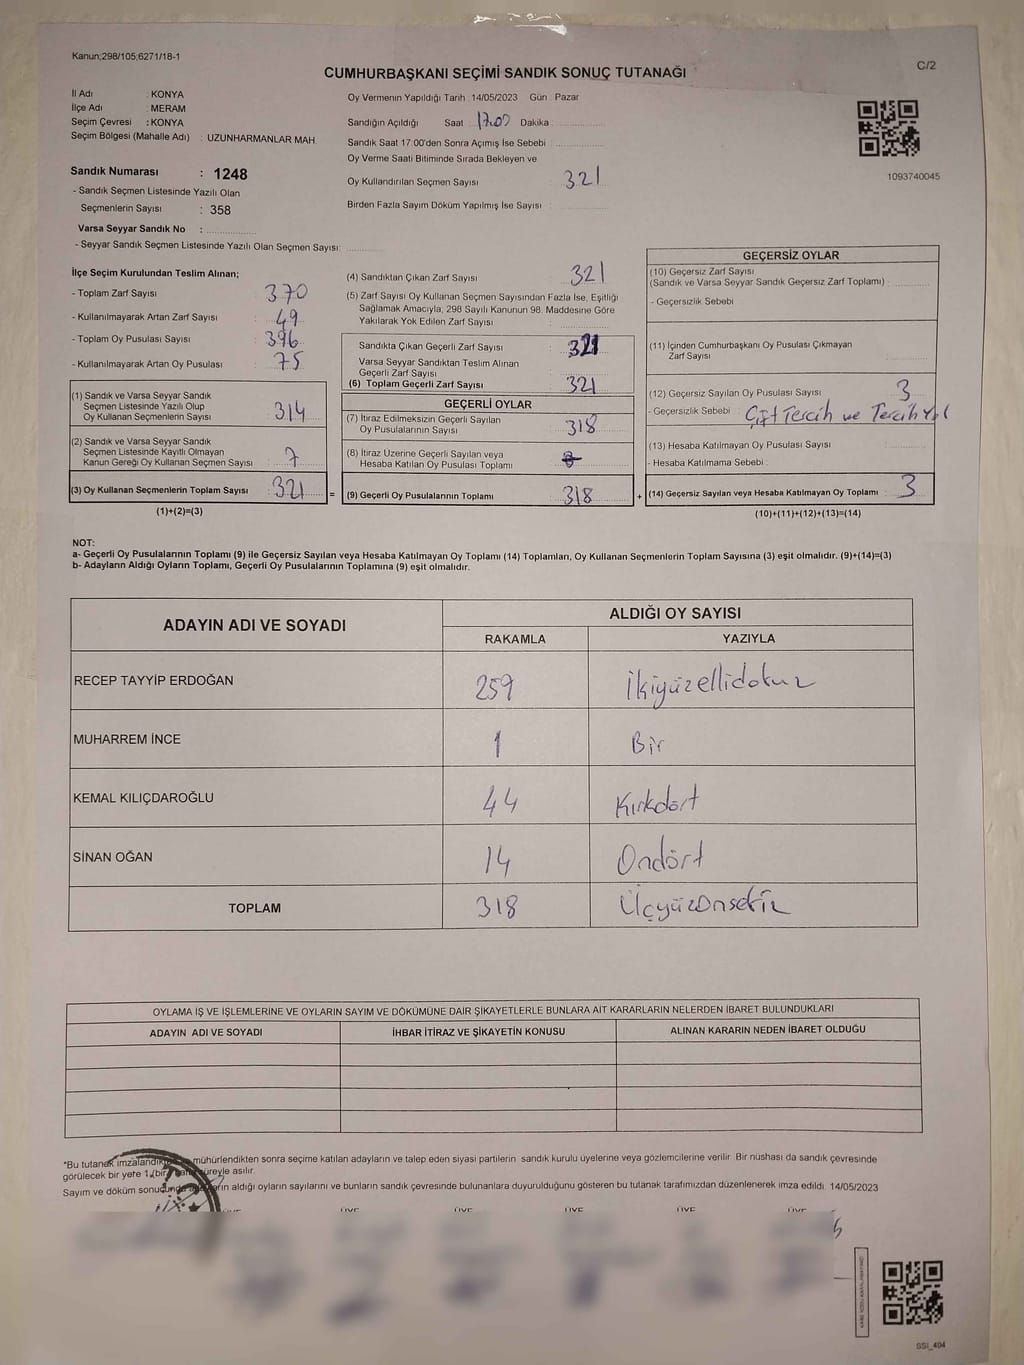 Kanun;298/105;6271/18-1
C/2
CUMHURBAŞKANI SEÇİMİ SANDIK SONUÇ TUTANAĞI
İl Adı : KONYA
İlçe Adı : MERAM
Seçim Çevresi : KONYA
Seçim Bölgesi (Mahalle Adı) : UZUNHARMANLAR MAH.
Sandık Numarası : 1248
- Sandık Seçmen Listesinde Yazılı Olan
Seçmenlerin Sayısı : 358
Varsa Seyyar Sandık No :
- Seyyar Sandık Seçmen Listesinde Yazılı Olan Seçmen Sayısı:
Oy Vermenin Yapıldığı Tarih 14/05/2023 Gün Pazar
Sandığın Açıldığı Saat 17.00 Dakika
Sandık Saat 17:00'den Sonra Açımış İse Sebebi
Oy Verme Saati Bitiminde Sırada Bekleyen ve
Oy Kullandırılan Seçmen Sayısı 321
Birden Fazla Sayım Döküm Yapılmış İse Sayısı
1093740045
İlçe Seçim Kurulundan Teslim Alınan;
- Toplam Zarf Sayısı : 370
- Kullanılmayarak Artan Zarf Sayısı : 49
- Toplam Oy Pusulası Sayısı : 396
- Kullanılmayarak Artan Oy Pusulası : 75
(1) Sandık ve Varsa Seyyar Sandık
Seçmen Listesinde Yazılı Olup
Oy Kullanan Seçmenlerin Sayısı : 314
(2) Sandık ve Varsa Seyyar Sandık
Seçmen Listesinde Kayıtlı Olmayan
Kanun Gereği Oy Kullanan Seçmen Sayısı : 7
(3) Oy Kullanan Seçmenlerin Toplam Sayısı : 321
(1)+(2)=(3)
=
(4) Sandıktan Çıkan Zarf Sayısı : 321
(5) Zarf Sayısı Oy Kullanan Seçmen Sayısından Fazla İse, Eşitliği
Sağlamak Amacıyla, 298 Sayılı Kanunun 98. Maddesine Göre
Yakılarak Yok Edilen Zarf Sayısı :
Sandıkta Çıkan Geçerli Zarf Sayısı : 321
Varsa Seyyar Sandıktan Teslim Alınan
Geçerli Zarf Sayısı :
(6) Toplam Geçerli Zarf Sayısı : 321
GEÇERLİ OYLAR
(7) İtiraz Edilmeksizin Geçerli Sayılan
Oy Pusulalarının Sayısı : 318
(8) İtiraz Üzerine Geçerli Sayılan veya
Hesaba Katılan Oy Pusulası Toplamı :
(9) Geçerli Oy Pusulalarının Toplamı : 318
+
GEÇERSİZ OYLAR
(10) Geçersiz Zarf Sayısı
(Sandık ve Varsa Seyyar Sandık Geçersiz Zarf Toplamı) :
- Geçersizlik Sebebi
(11) İçinden Cumhurbaşkanı Oy Pusulası Çıkmayan
Zarf Sayısı
(12) Geçersiz Sayılan Oy Pusulası Sayısı 3
- Geçersizlik Sebebi : Çift Tercih ve Tercih Yok
(13) Hesaba Katılmayan Oy Pusulası Sayısı
- Hesaba Katılmama Sebebi :
(14) Geçersiz Sayılan veya Hesaba Katılmayan Oy Toplamı : 3
(10)+(11)+(12)+(13)=(14)
NOT:
a- Geçerli Oy Pusulalarının Toplamı (9) ile Geçersiz Sayılan veya Hesaba Katılmayan Oy Toplamı (14) Toplamları, Oy Kullanan Seçmenlerin Toplam Sayısına (3) eşit olmalıdır. (9)+(14)=(3)
b- Adayların Aldığı Oyların Toplamı, Geçerli Oy Pusulalarının Toplamına (9) eşit olmalıdır.
ADAYIN ADI VE SOYADI
ALDIĞI OY SAYISI
RAKAMLA YAZIYLA
RECEP TAYYİP ERDOĞAN 259 İkiyüzellidokuz
MUHARREM İNCE 1 Bir
KEMAL KILIÇDAROĞLU 44 Kırkdört
SİNAN OĞAN 14 Ondört
TOPLAM 318 Üçyüzonsekiz
OYLAMA İŞ VE İŞLEMLERİNE VE OYLARIN SAYIM VE DÖKÜMÜNE DAİR ŞİKAYETLERLE BUNLARA AİT KARARLARIN NELERDEN İBARET BULUNDUKLARI
ADAYIN ADI VE SOYADI İHBAR İTİRAZ VE ŞİKAYETİN KONUSU ALINAN KARARIN NEDEN İBARET OLDUĞU
*Bu tutanak mühürlendikten sonra seçime katılan adayların ve talep eden siyasi partilerin sandık kurulu üyelerine veya gözlemcilerine verilir. Bir nüshası da sandık çevresinde
görülecek bir yere asılır.
Sayım ve döküm aldığı oyların sayılarını ve bunların sandık çevresinde bulunanlara duyurulduğunu gösteren bu tutanak tarafımızdan düzenlenerek imza edildi. 14/05/2023
ÜYE ÜYE ÜYE ÜYE ÜYE ÜYE